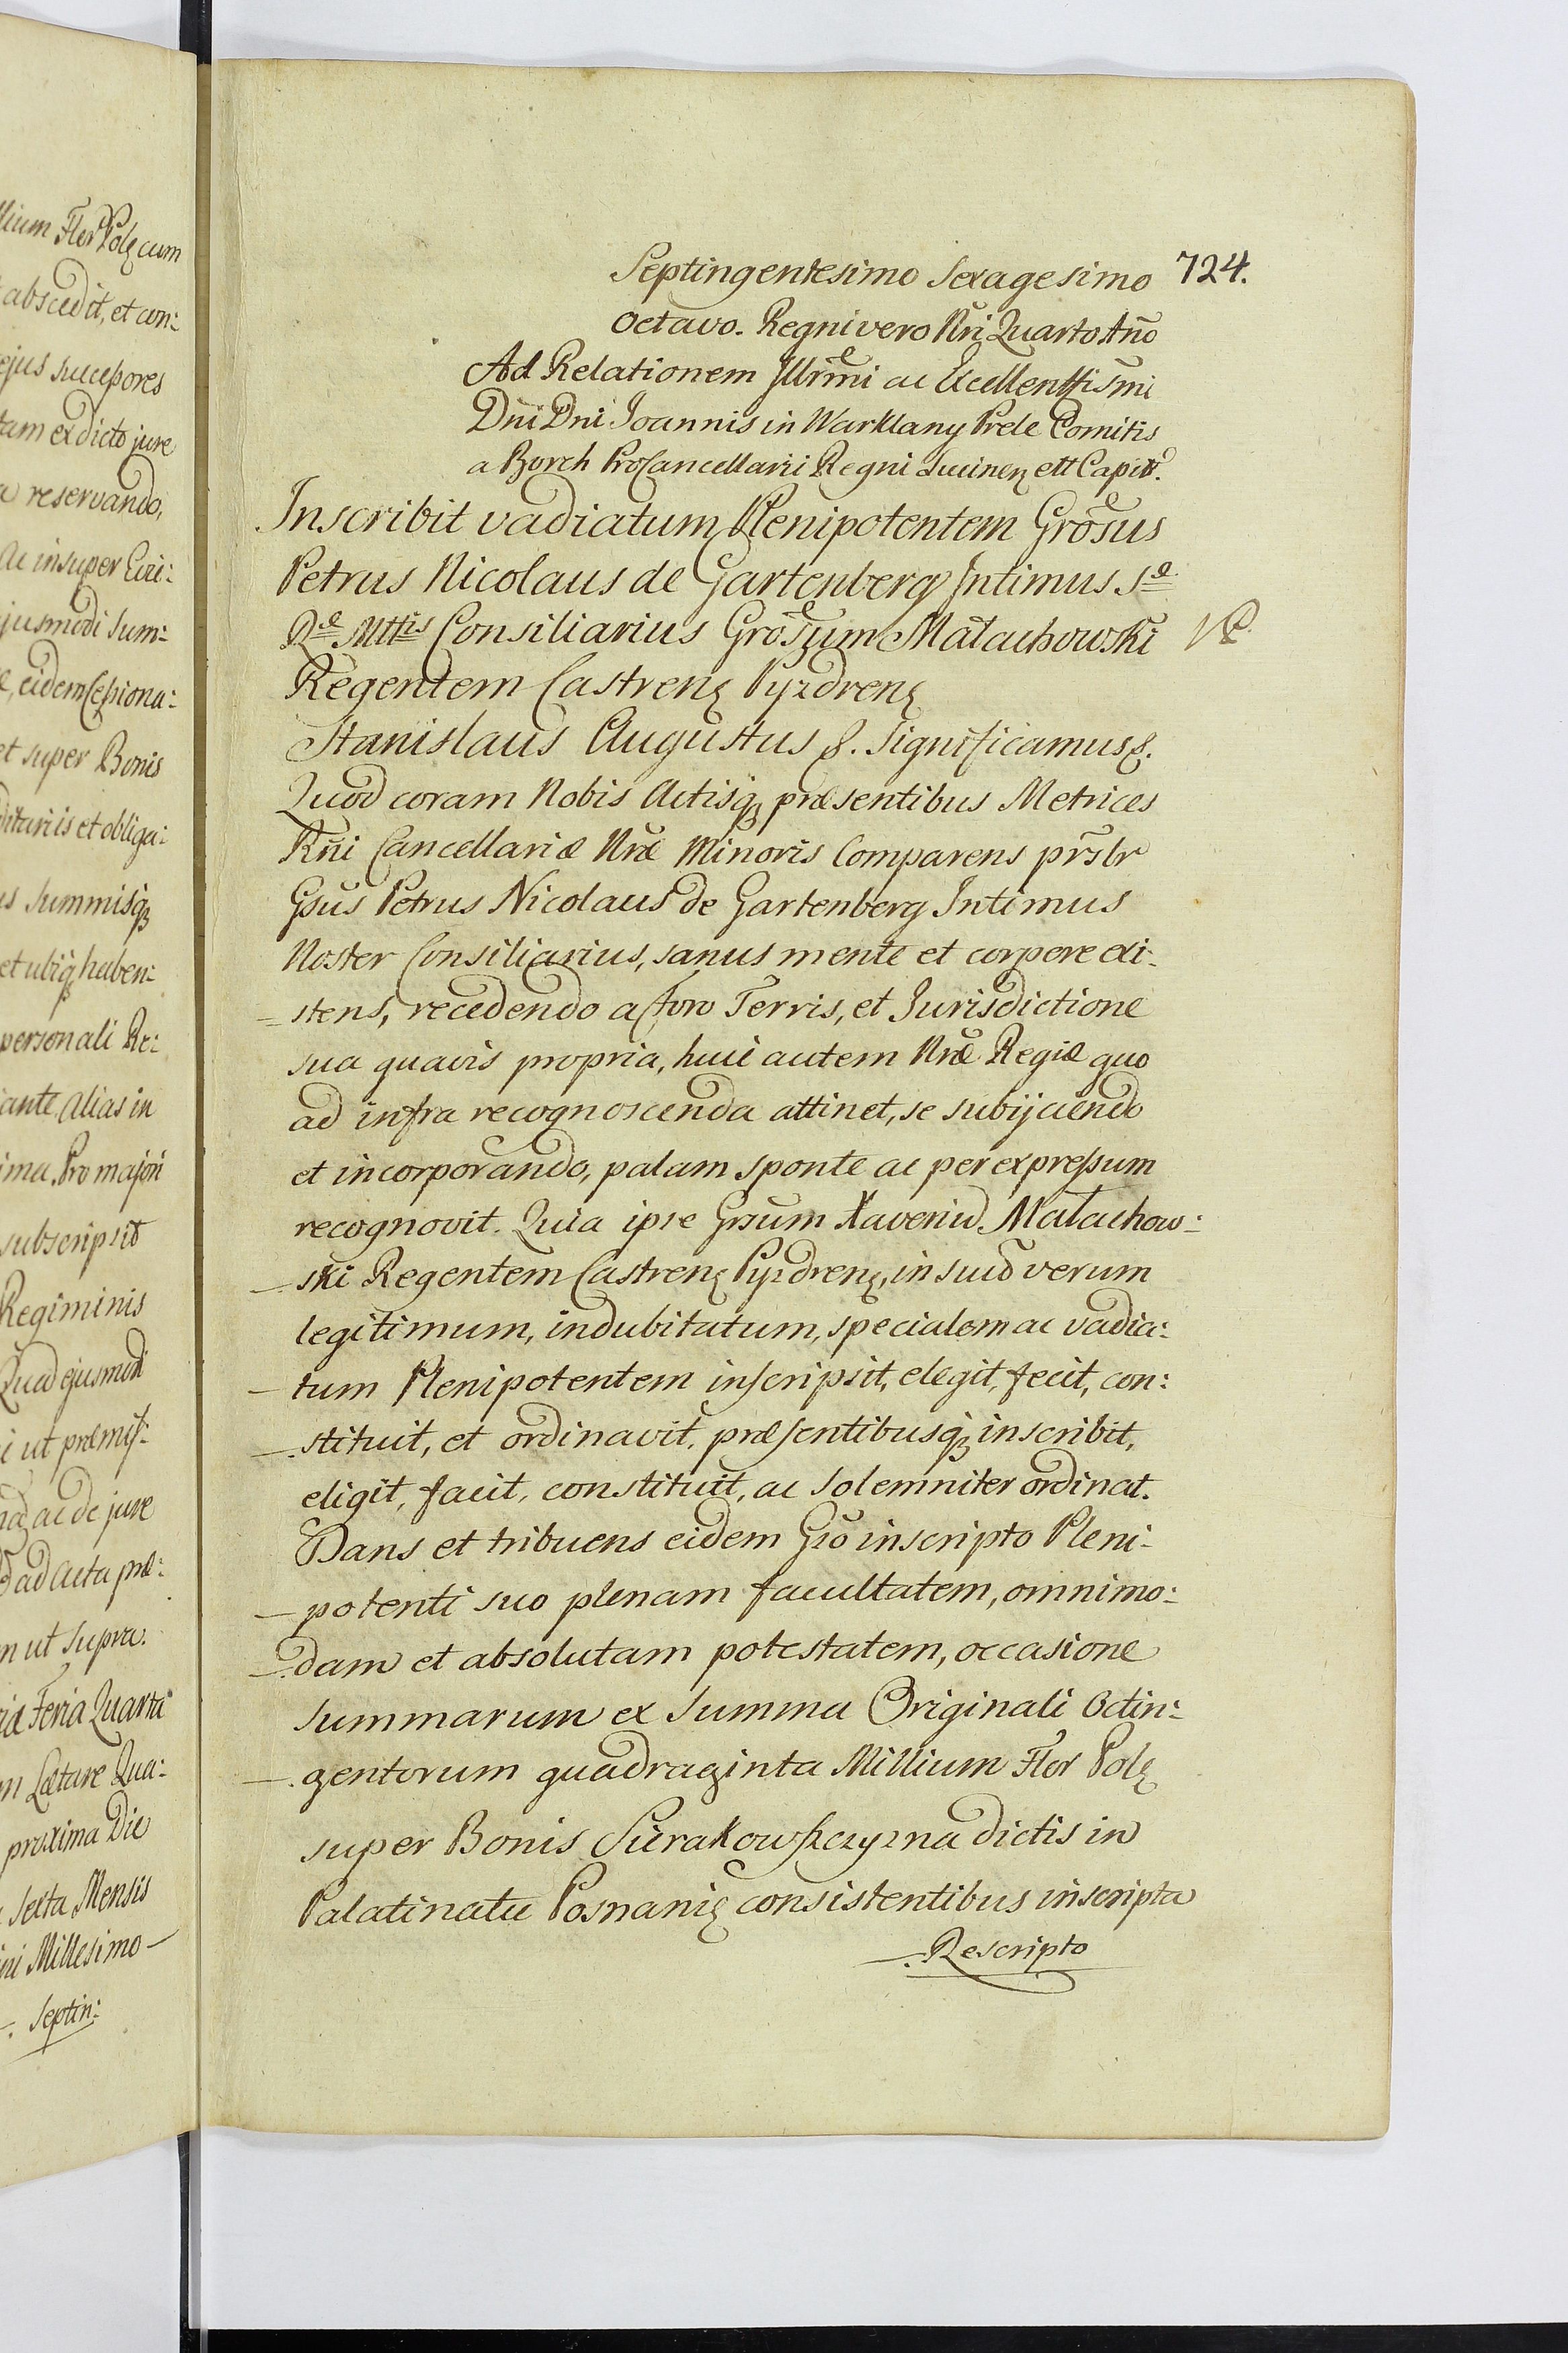 llium Flor Pol cum
abscedit, et con:
ejus successores
tam ex dicto jure
reservando,
ac insuper Evi:
jusmodi Sum:
eidem Cessiona:
et super Bonis
ditariis et obliga:
s Summisq
et ubiq haben:
personali Re:
ante alias in
ima. Pro majori
subscripsit
Regiminis
Quad ejusmodi
i ut præmiss:
ac de jure
ad acta præ:
m ut supra.
Feria Quarta
m Lætare Qua:
proxima Die
Sexta Mensis
ini Millesimo
Septin:
724.
Septingentesimo Sexagesimo
octavo. Regni vero Nri Quarto Año
Ad Relationem Illrmi ac Excellenttismi
Dñi Dñi Joannis in Warklany Prele Comitis
a Borch ProCancellarii Regni Lucinen ett Capit.
Inscribit vadiatum Plenipotentem Grosus
Petrus Nicolaus de Gartenberg Intimus Sæ
Ræ Mttis Consiliarius Groszum Małachowski
Regentem Castren Pyzdren
NP.
Stanislaus Augustus &. Significamus &.
Quod coram Nobis Actisq præsentibus Metrices
Rñi Cancellariæ Nræ Minoris Comparens prslr
Gsus Petrus Nicolaus de Gartenberg Intimus
Noster Consiliarius, sanus mente et corpore exi-
-stens, recedendo a foro Terris, et Jurisdictione
sua quavis propria, huic autem Nræ Regiæ quo
ad infra recognoscenda attinet, se subijciendo
et incorporando, palam sponte ac per expressum
recognovit. Quia ipse Grsum Xaveriu Małachow:
-ski Regentem Castren Pyzdren, in suu verum
legitimum, indubitatum, specialem ac vadia:
-tum Plenipotentem inscripsit, elegit, fecit, con:
-stituit, et ordinavit, præsentibusq inscribit,
eligit, facit, constituit, ac Solemniter ordinat.
Dans et tribuens eidem Gso inscripto Pleni-
-potenti suo plenam facultatem, omnimo:
-dam et absolutam potestatem, occasione
summarum ex Summa Originali Octin:
-gentorum quadraginta Millium Flor Pol
super Bonis Sierakowszczyzna dictis in
Palatinatu Posnani consistentibus inscripta
-Rescripto